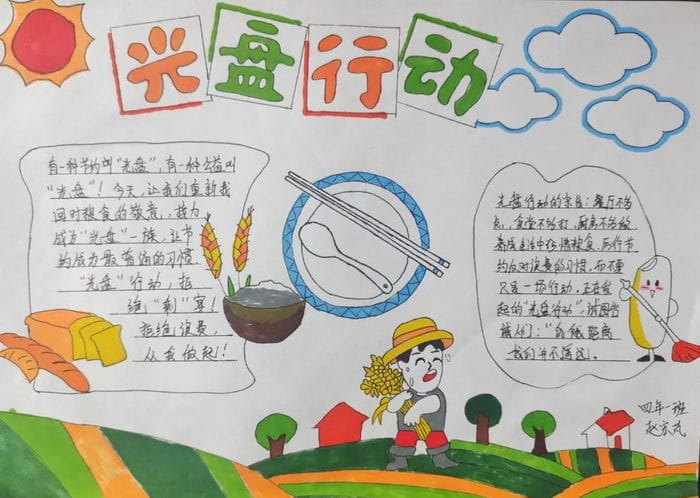 光盘行动
有一种节约叫“光盘”,有一种公益叫
“光盘”!今天,让我们重新找
回对粮食的敬意,
成为“光盘”一族,让节
约成为最普遍的习惯
“光盘”行动,拒
绝“剩”宴!
拒绝浪费,
从我做起!
光盘行动的宗旨:餐厅不多
点,食堂不多打,厨房不多做
养成生活中珍惜粮食,厉行节
约反对浪费的习惯,而不要
只是一场行动。
起的“光盘行动”,试图告
诫们:“饥饿距离
我们并不遥远。
四年一班